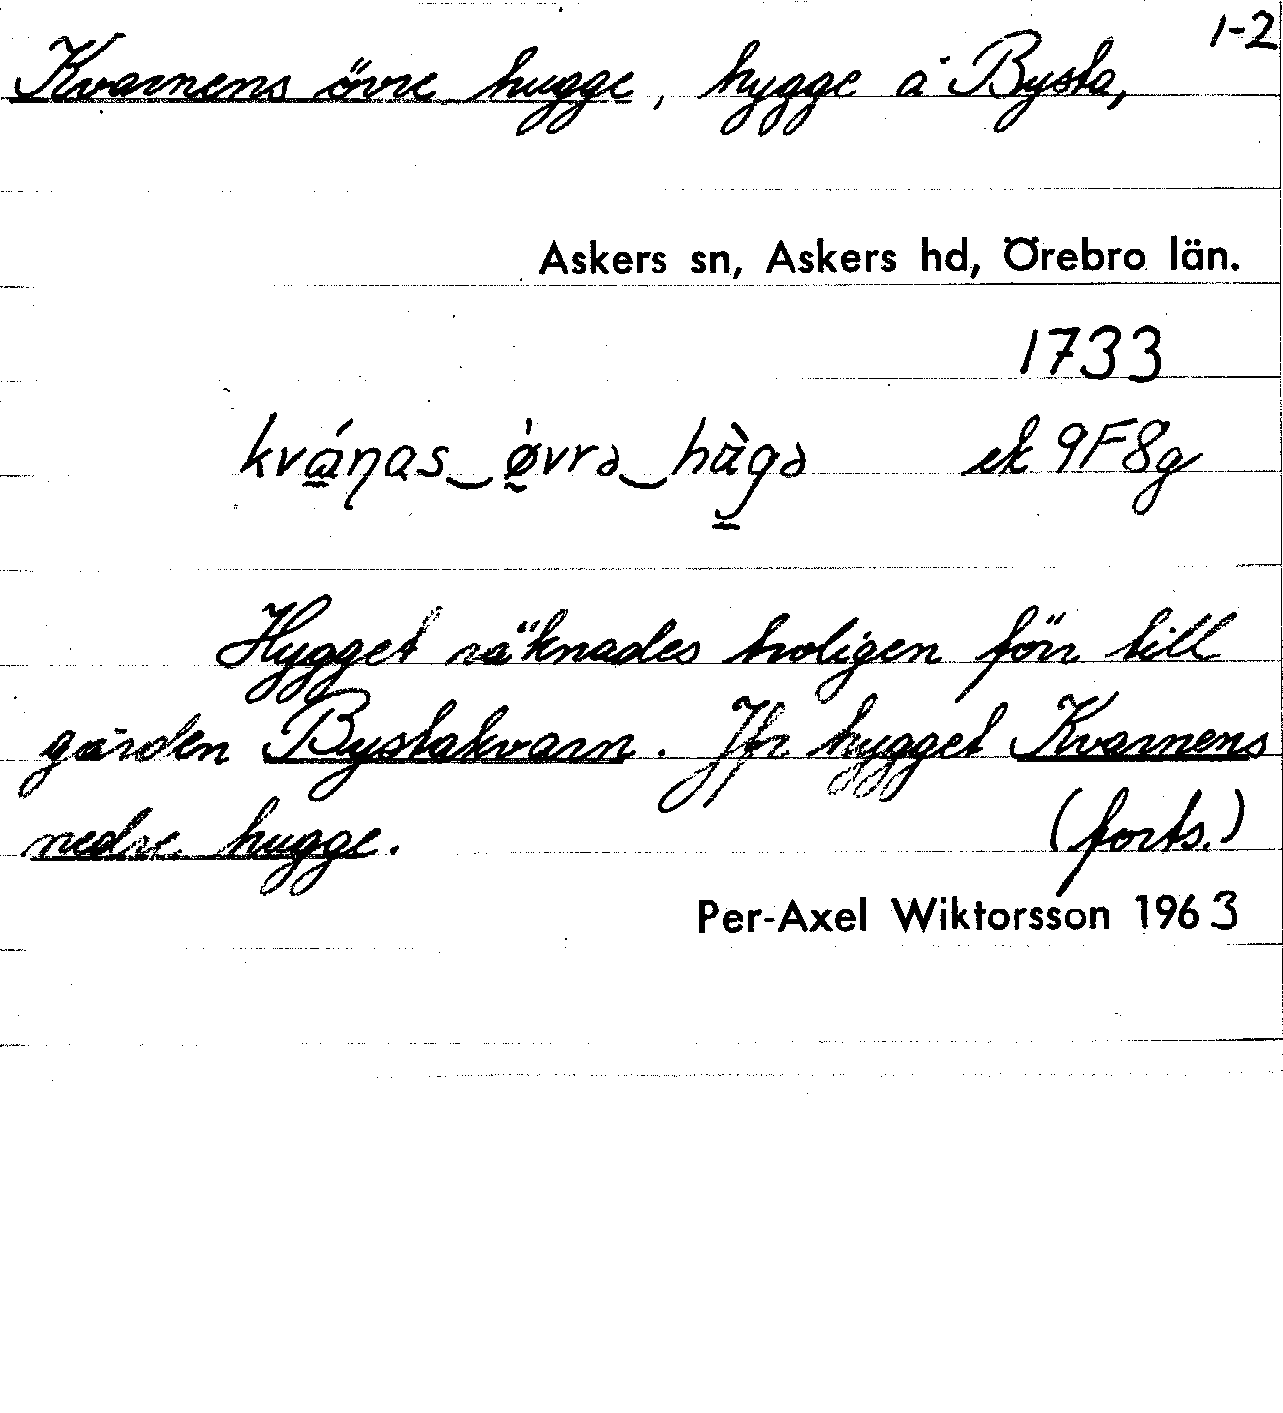 1-2
Kvarnens övre hugge, hygge å Bysta,
Askers sn, Askers hd, Örebro län.
1733
ek 9F8g
Hygget räknades troligen förr till
gården Bystakvarn. Jfr hygget Kvarnens
nedre hugge. (forts.)
Per-Axel Wiktorsson 1963